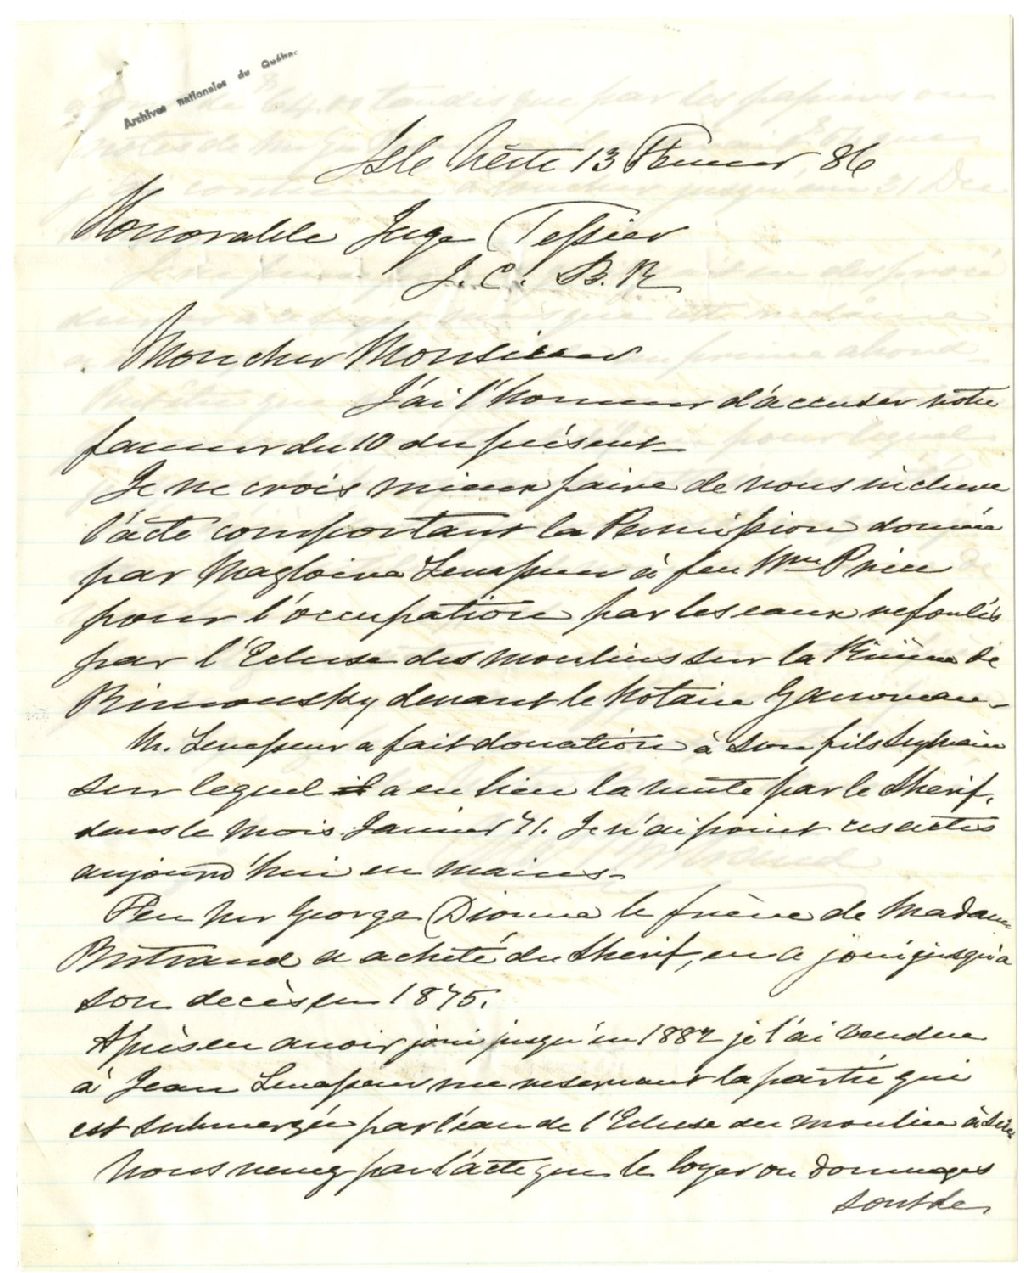 Archives nationales du Québec
Isle Verte 13 Fevrier 86
Honorable Juge Tessier
J. C. B. R
Mon cher Monsieur
J'ai l'honneur d'accuser votre
faveur du 10 du présent
Je ne crois mieux faire de vous inclure
l'acte comportant la Permission donnée
par Magloire Levasseur à feu Wm Price
pour l'occupation par les eaux refoulés
par l'Ecluse des moulins sur la Rivière de
Rimousky devant le Notaire Garoneau
M. Levasseur a fait donation à son fils Sylvain
sur lequel il a eu lieu la vente par le Sherif,
dans le Mois Janvier 71. Je n'ai point ces actes
aujourd'hui en mains
Feu Mr George Dionne le frère de Madame
Bertrand a acheté du Sherif, en a joui jusqu'a
son decès en 1875.
Après en avoir joui jusqu'en 1882 je l'ai vendue
à Jean Levasseur, me reservant la partie qui
est submergée par l'eau de l'Ecluse du moulin à Scies
Vous verrez par l'acte que le loyer ou dommages
sont de